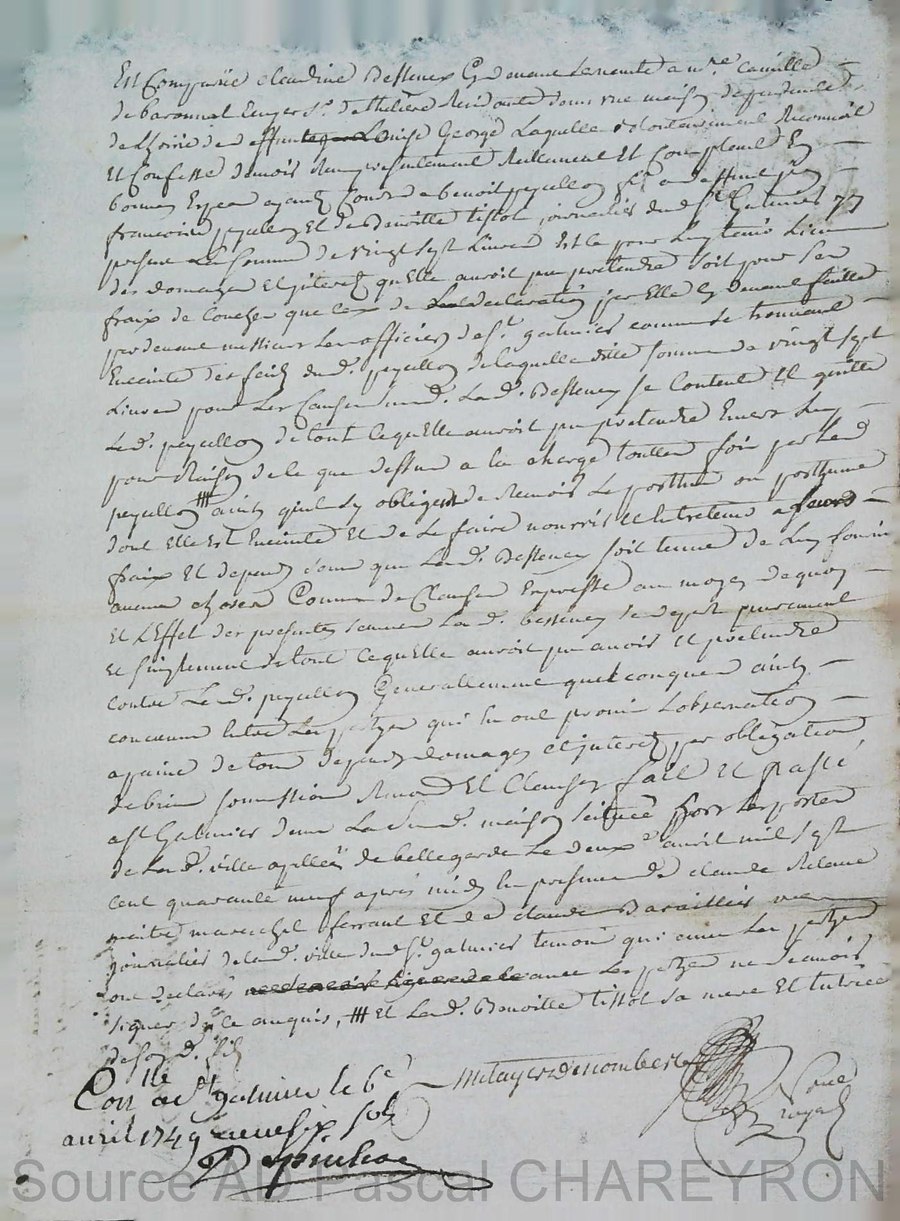 Est Comparüe claudine Bessenex par devant Le notaire a n.re camille
de baronnat Ecuyer S.r de theliere Residante dans une maison dependante
de L'hoirie de deffunte Louise George Laquelle volontairement Reconnoit
Et Confesse d'avoir Reçu presentement Reellement Et Comptant En
bonnes Especes ayant Cours de benoit peycellon fils a deffunt
francoise peycellon Et de Benoitte tissot journalier dud. S.t Galmier
presant La Somme de vingt sept Livres Et ce pour Luy tenir Lieu
des domages Et jnterets qu'Elle auroit pu pretendre soit pour Ses
fraix de Couches que ceux de declaration par Elle
pardevant messieurs Les officiers de S.t galmier comme Se trouvant
Enceinte des faits dud. peycellon de laquelle ditte somme de vingt sept
Livres pour Les Causes susd. Lad. Bessenex se Contente Et quitte
Led. peycellon de tout ce qu'Elle auroit pu pretendre Envers Luy
pour Raison de ce que dessus a la charge touttes fois par Led
peycellon ainsi qu'il s'y oblige de Recevoir Le posthume ou posthume
dont Elle Est Enceinte Et de Le faire nourrir Et Entretenir a
fraix Et depends sans que Lad. Bessenex soit tenue de Luy fournir
aucune choses Comme de Clause Expresse au moyen de quoy
Et L'Effet des presentes Lad. bessenex se depart purement
Et simplement de tout ce qu'Elle auroit pu avoir Et pretendre
contre Led. peycellon Generallement quelconques ainsi
convenu Entre Les parties qui En ont promis L'observation
a peine de tous depends domages Et jnterets par obligation
de biens soumissions Renon Et Clauses fait Et passé
a S.t Galmier dans La Susd. maison scituée hors Les portes
de Lad. ville de bellegarde Le deux.e avril mil sept
cent quarante neuf apres midy En presence de claude
maitre marechal ferrant Et de claude Baraillier
journalier de lad. ville dud. S.t galmier temoins qui avec Les parties
ont declarés avec Les parties ne Scavoir
signer de ce enquis, Et Lad. Benoitte tissot sa mere Et tutrice
de Son d. fils
Con.lle a S.t galmier le 6.e
avril 1749 Reçu six sols
Despinhac
Metayer Denombert
Noe.
Royal
Source AD Pascal CHAREYRON